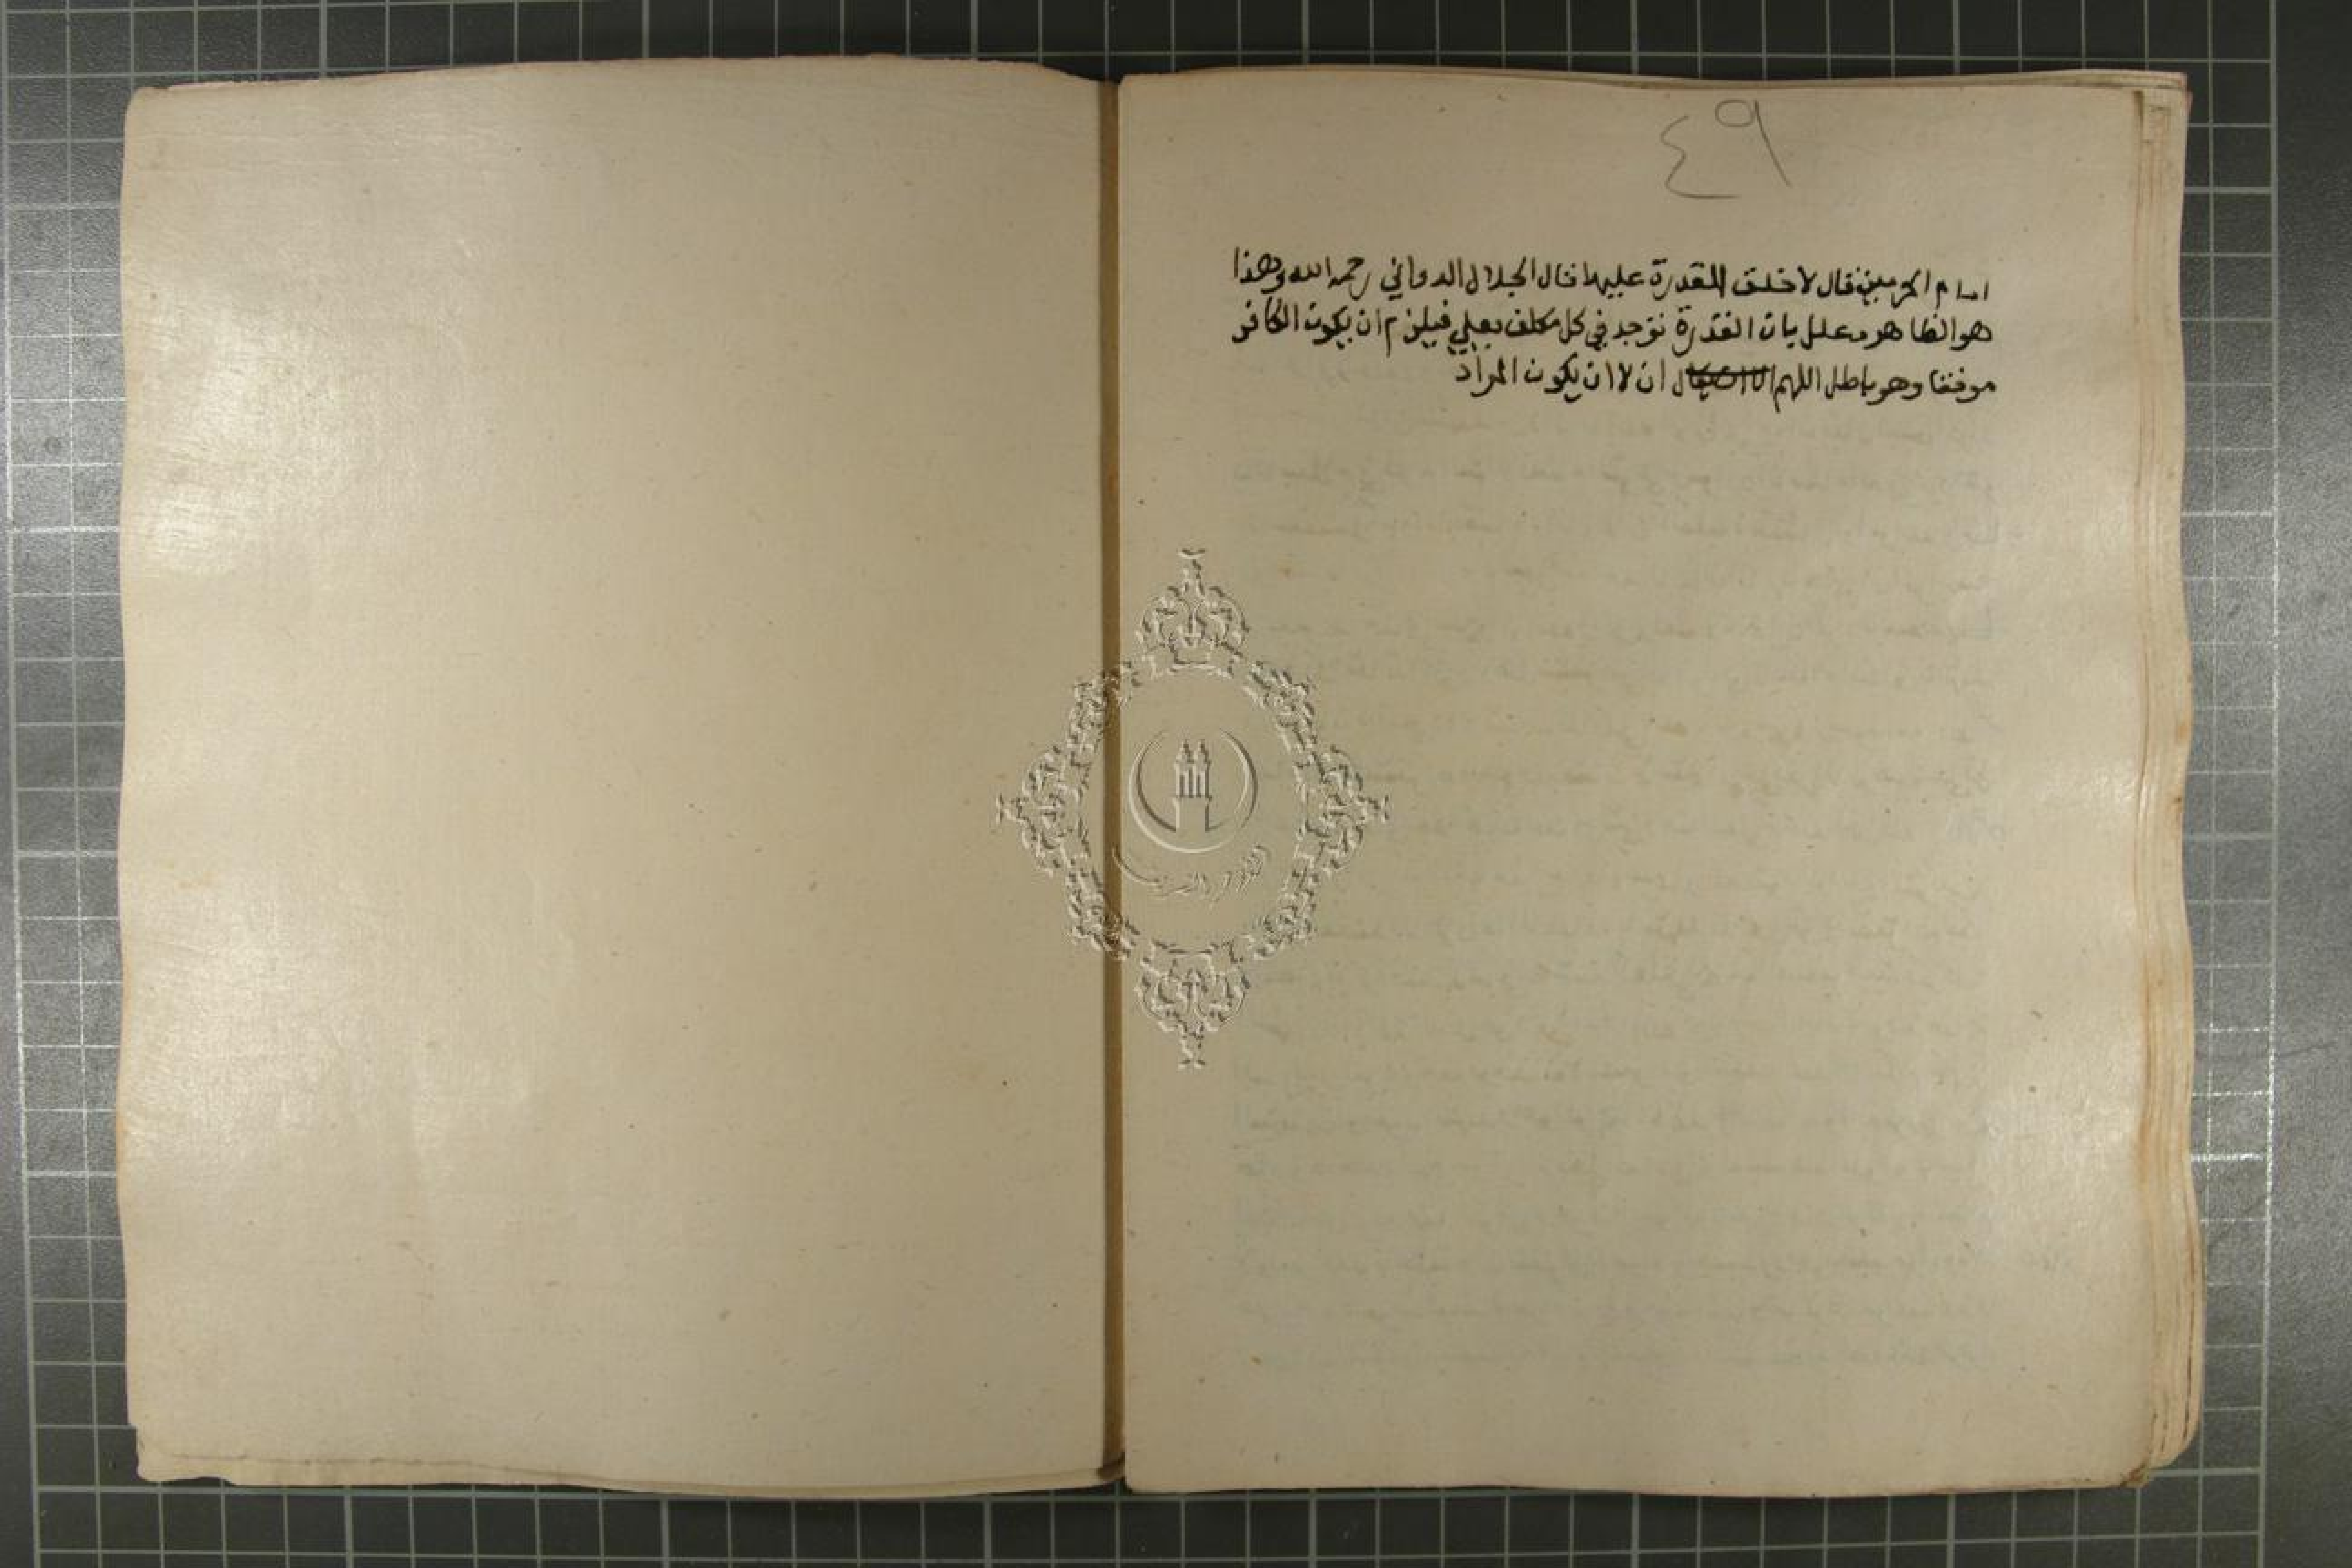 ٤٩
امام الحرمين فقال لا خلق القدرة عليها قال الجلال الدواني رحمه الله وهذا
هو الظاهر وعلل بان القدرة توجد في كل مكلف فيلزم ان يكون الكافر
موفقا وهو باطل اللهم ان لا ان يكون المراد